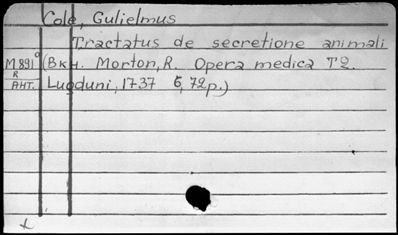 Cole, Gulielmus
Tractatus de secretione animali
M891° (Вкн. Morton, R. Opera medica T2.
R
АНТ. Lugduni, 1737 6, 72p.)